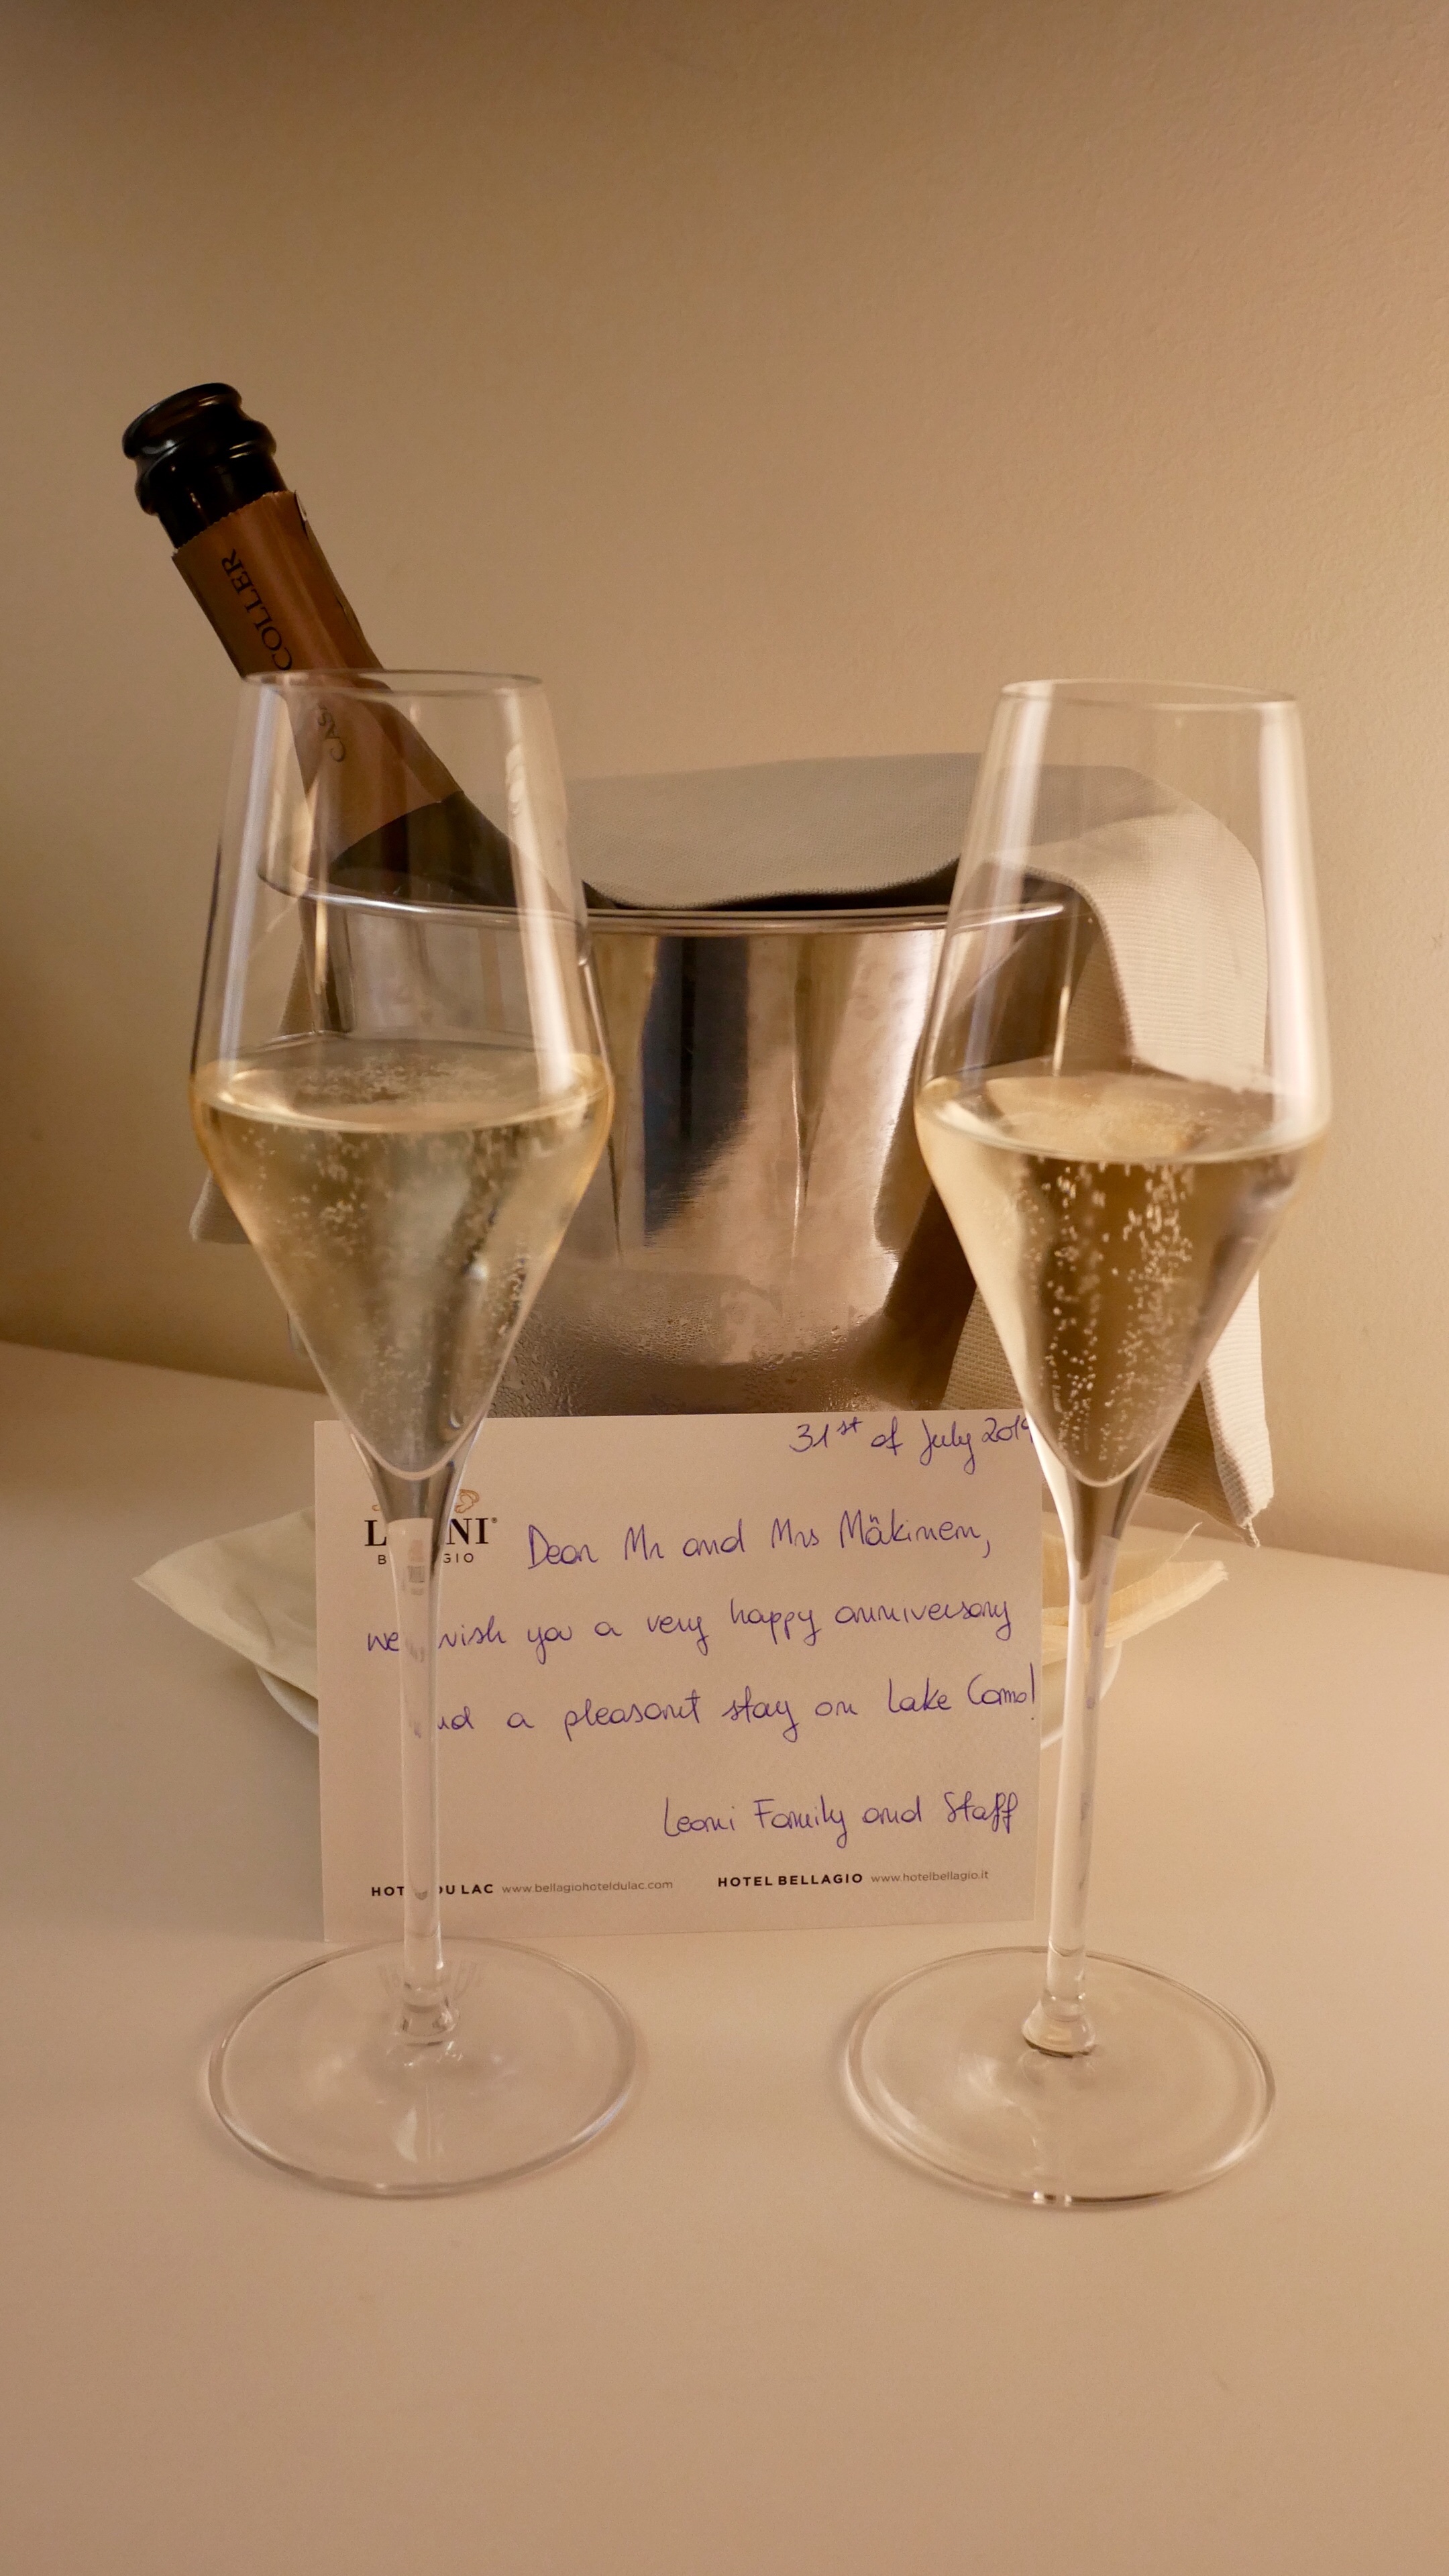 COLLER
CAS
31st of July 2019
L NI®
B GIO
Dear Mr and Mrs Mäkinen,
we wish you a very happy anniversary
and a pleasant stay on Lake Como!
Leoni Family and Staff
HOT DU LAC www.bellagiohoteldulac.com HOTEL BELLAGIO www.hotelbellagio.it